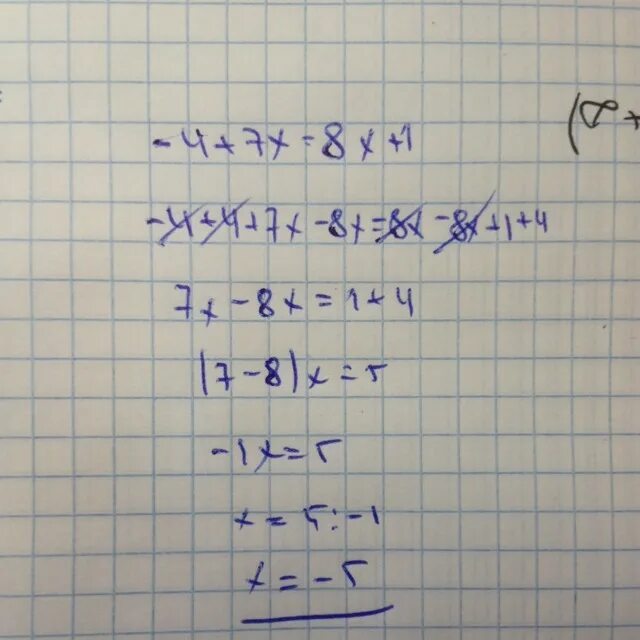 -4+7x=8x+1
-4+4+7x-8x=8x-8x+1+4
7x-8x=1+4
(7-8)x=5
-1x=5
x=5:-1
x=-5